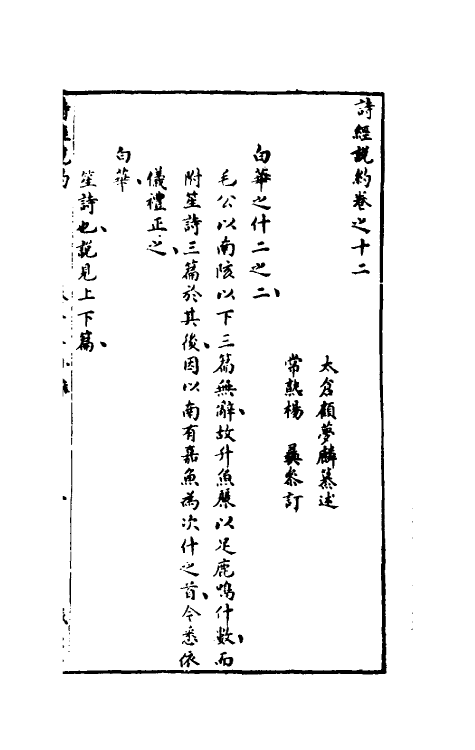 詩經説約卷之十二
太倉顧夢麟纂述
常熟楊　彝參訂
白華之什二之二
毛公以南陔以下三篇無辭故升魚麗以足鹿鳴什數而
附笙詩三篇於其後因以南有嘉魚為次什之首今悉依
儀禮正之
白華
笙詩也説見上下篇